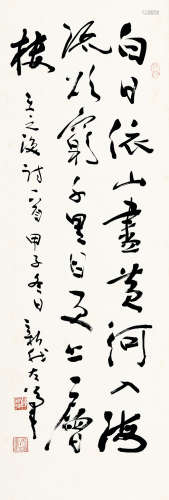 白日依山盡黃河入海
流欲窮千里目更上一層
樓 王之渙詩一首 甲子冬日 新我左筆